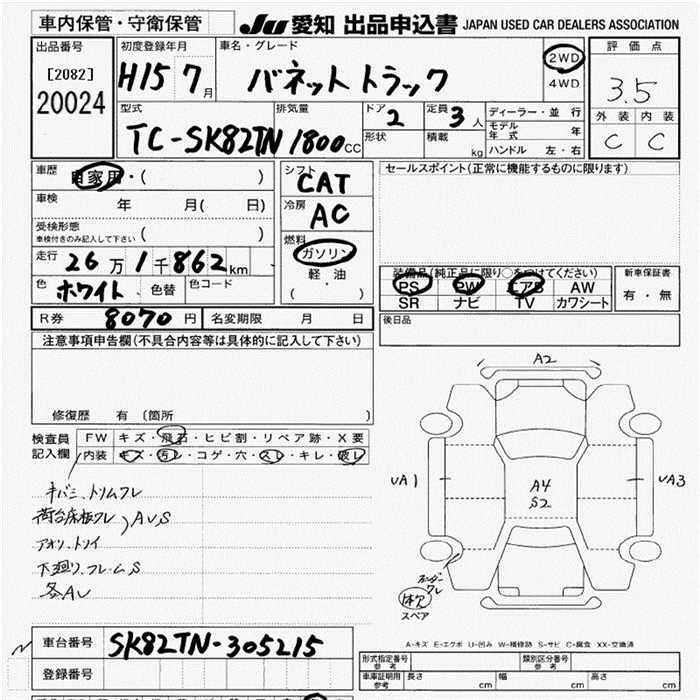 車内保管・守衛保管
JU 愛知 出品申込書 JAPAN USED CAR DEALERS ASSOCIATION
出品番号
[2082]
20024
初度登録年月
H15 7月
車名・グレード
バネット トラック
2WD
4WD
評価点
3.5
外装 内装
C C
型式
TC-SK82TN
排気量
1800cc
ドア
2
形状
定員
3人
積載
kg
ディーラー・並行
モデル年式 年
ハンドル 左・右
車歴
自家用・( )
車検
年 月( 日)
受検形態
車検付きのみ記入して下さい ( )
走行
26万1千862km
色
ホワイト
色替
色コード
シフト
CAT
冷房
AC
燃料
ガソリン
軽・油
( )
セールスポイント(正常に機能するものに限ります)
装備品(純正品に限り○をつけてください)
PS PW エアB AW
SR ナビ TV カワシート
新車保証書
有・無
後日品
R券 8070円
名変期限 月 日
注意事項申告欄(不具合内容等は具体的に記入して下さい)
修復歴 有 〔箇所 〕
検査員
記入欄
FW キズ・飛石・ヒビ割・リペア跡・X要
内装 キズ・汚レ・コゲ・穴・スレ・キレ・破レ
キバミ、トリムワレ
荷台床板ワレ
AUS
アオリ、トソイ
下廻り、フレームS
各AU
A2
UA1
A4
S2
UA3
ボーダー
ワレ
欠
スペア
A-キズ E-エクボ U-凹み W-補修跡 S-サビ C-腐食 XX-交換済
車台番号 SK82TN-305215
登録番号
形式指定番号
参考
類別区分番号
参考
車庫証明用
参考
長さ cm
幅 cm
高さ cm